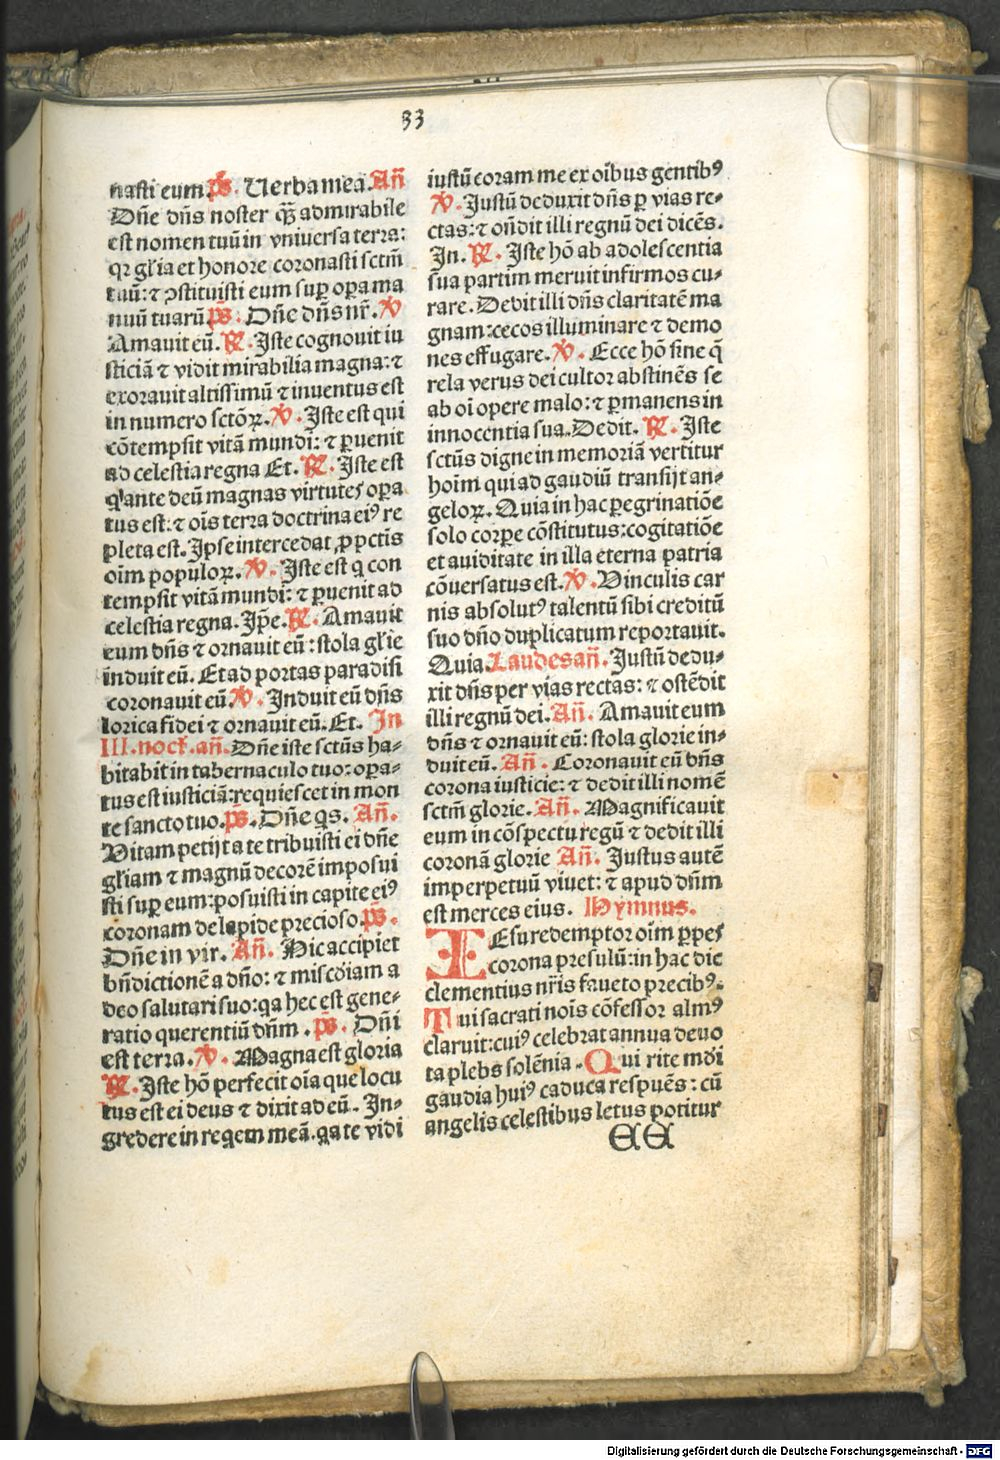 33
nasti eum. p̄s. Uerba mea. An̄
Dn̄e dn̄s noster q̄ꝫ admirabile
est nomen tuū in vniuersa terra:
qꝛ gl̄ia et honore coronasti sctm̄
tuū: ⁊ ꝯstituisti eum suꝑ oꝑa ma
nuū tuarū p̄s. Dn̄e dn̄s nr̄. ℣
Amauit eū. ℟. Iste cognouit iu
sticiā ⁊ vidit mirabilia magna: ⁊
exorauit altissimū ⁊ inuentus est
in numero sctōꝝ. ℣. Iste est qui
cōtempsit vitā mundi: ⁊ ꝑuenit
ad celestia regna Et. ℟. Iste est
q̇ ante deū magnas virtutes oꝑa
tus est: ⁊ oīs terra doctrina eiꝰ re
pleta est. Ipse intercedat ꝓ pctis
oīm populoꝝ. ℣. Iste est q con
tempsit vitā mundi: ⁊ ꝑuenit ad
celestia regna. Ip̄e. ℟. Amauit
eum dn̄s ⁊ ornauit eū: stola gl̄ie
induit eū. Et ad portas paradisi
coronauit eū. ℣. Induit eū dn̄s
lorica fidei ⁊ ornauit eū. Et. In
III. noct̄. an̄. Dn̄e iste sctūs ha-
bitabit in tabernaculo tuo: oꝑa-
tus est iusticiā: requiescet in mon
te sancto tuo. p̄s. Dn̄e q̇s. An̄.
Vitam petijt a te tribuisti ei dn̄e
gl̄iam ⁊ magnū decorē imposui
sti suꝑ eum: posuisti in capite eiꝰ
coronam de lapide precioso. p̄s.
Dn̄e in vir. An̄. Hic accipiet
bn̄dictionē a dn̄o: ⁊ mīscd̄iam a
deo salutari suo: qa hec est gene-
ratio querentiū dn̄m. p̄s. Dn̄i
est terra. ℣. Magna est gloria
℟. Iste hō perfecit oīa que locu
tus est ei deus ⁊ dixit ad eū. In-
gredere in requiem meā. qa te vidi
iustū coram me ex oībus gentibꝰ
℣. Iustū deduxit dn̄s ꝑ vias re-
ctas: ⁊ on̄dit illi regnū dei dicēs.
In. ℟. Iste hō ab adolescentia
sua partim meruit infirmos cu-
rare. Dedit illi dn̄s claritatē ma
gnam: cecos illuminare ⁊ demo
nes effugare. ℣. Ecce hō sine q̄
rela verus dei cultor abstinēs se
ab oī opere malo: ⁊ ꝑmanens in
innocentia sua. Dedit. ℟. Iste
sctūs digne in memoriā vertitur
hoīm qui ad gaudiū transijt an-
geloꝝ. Quia in hac ꝑegrinatiōe
solo corꝑe cōstitutus: cogitatiōe
et auiditate in illa eterna patria
cōuersatus est. ℣. Vinculis car
nis absolutꝰ talentū sibi creditū
suo dn̄o duplicatum reportauit.
Quia. Laudes an̄. Iustū dedu-
xit dn̄s per vias rectas: ⁊ ostēdit
illi regnū dei. An̄. Amauit eum
dn̄s ⁊ ornauit eū: stola glorie in-
duit eū. An̄. Coronauit eū dn̄s
corona iusticie: ⁊ dedit illi nomē
sctm̄ glorie. An̄. Magnificauit
eum in cōspectu regū ⁊ dedit illi
coronā glorie An̄. Iustus autē
imperpetuū viuet: ⁊ apud dn̄m
est merces eius. Hymnus.
IEsu redemptor oīm ꝑpes
corona presulū: in hac die
clementius nr̄is faueto precibꝰ.
Tui sacrati noīs cōfessor almꝰ
claruit: cuiꝰ celebrat annua deuo
ta plebs solēnia. Qui rite mūdi
gaudia huiꝰ caduca respuēs: cū
angelis celestibus letus potitur
Digitalisierung gefördert durch die Deutsche Forschungsgemeinschaft - DFG